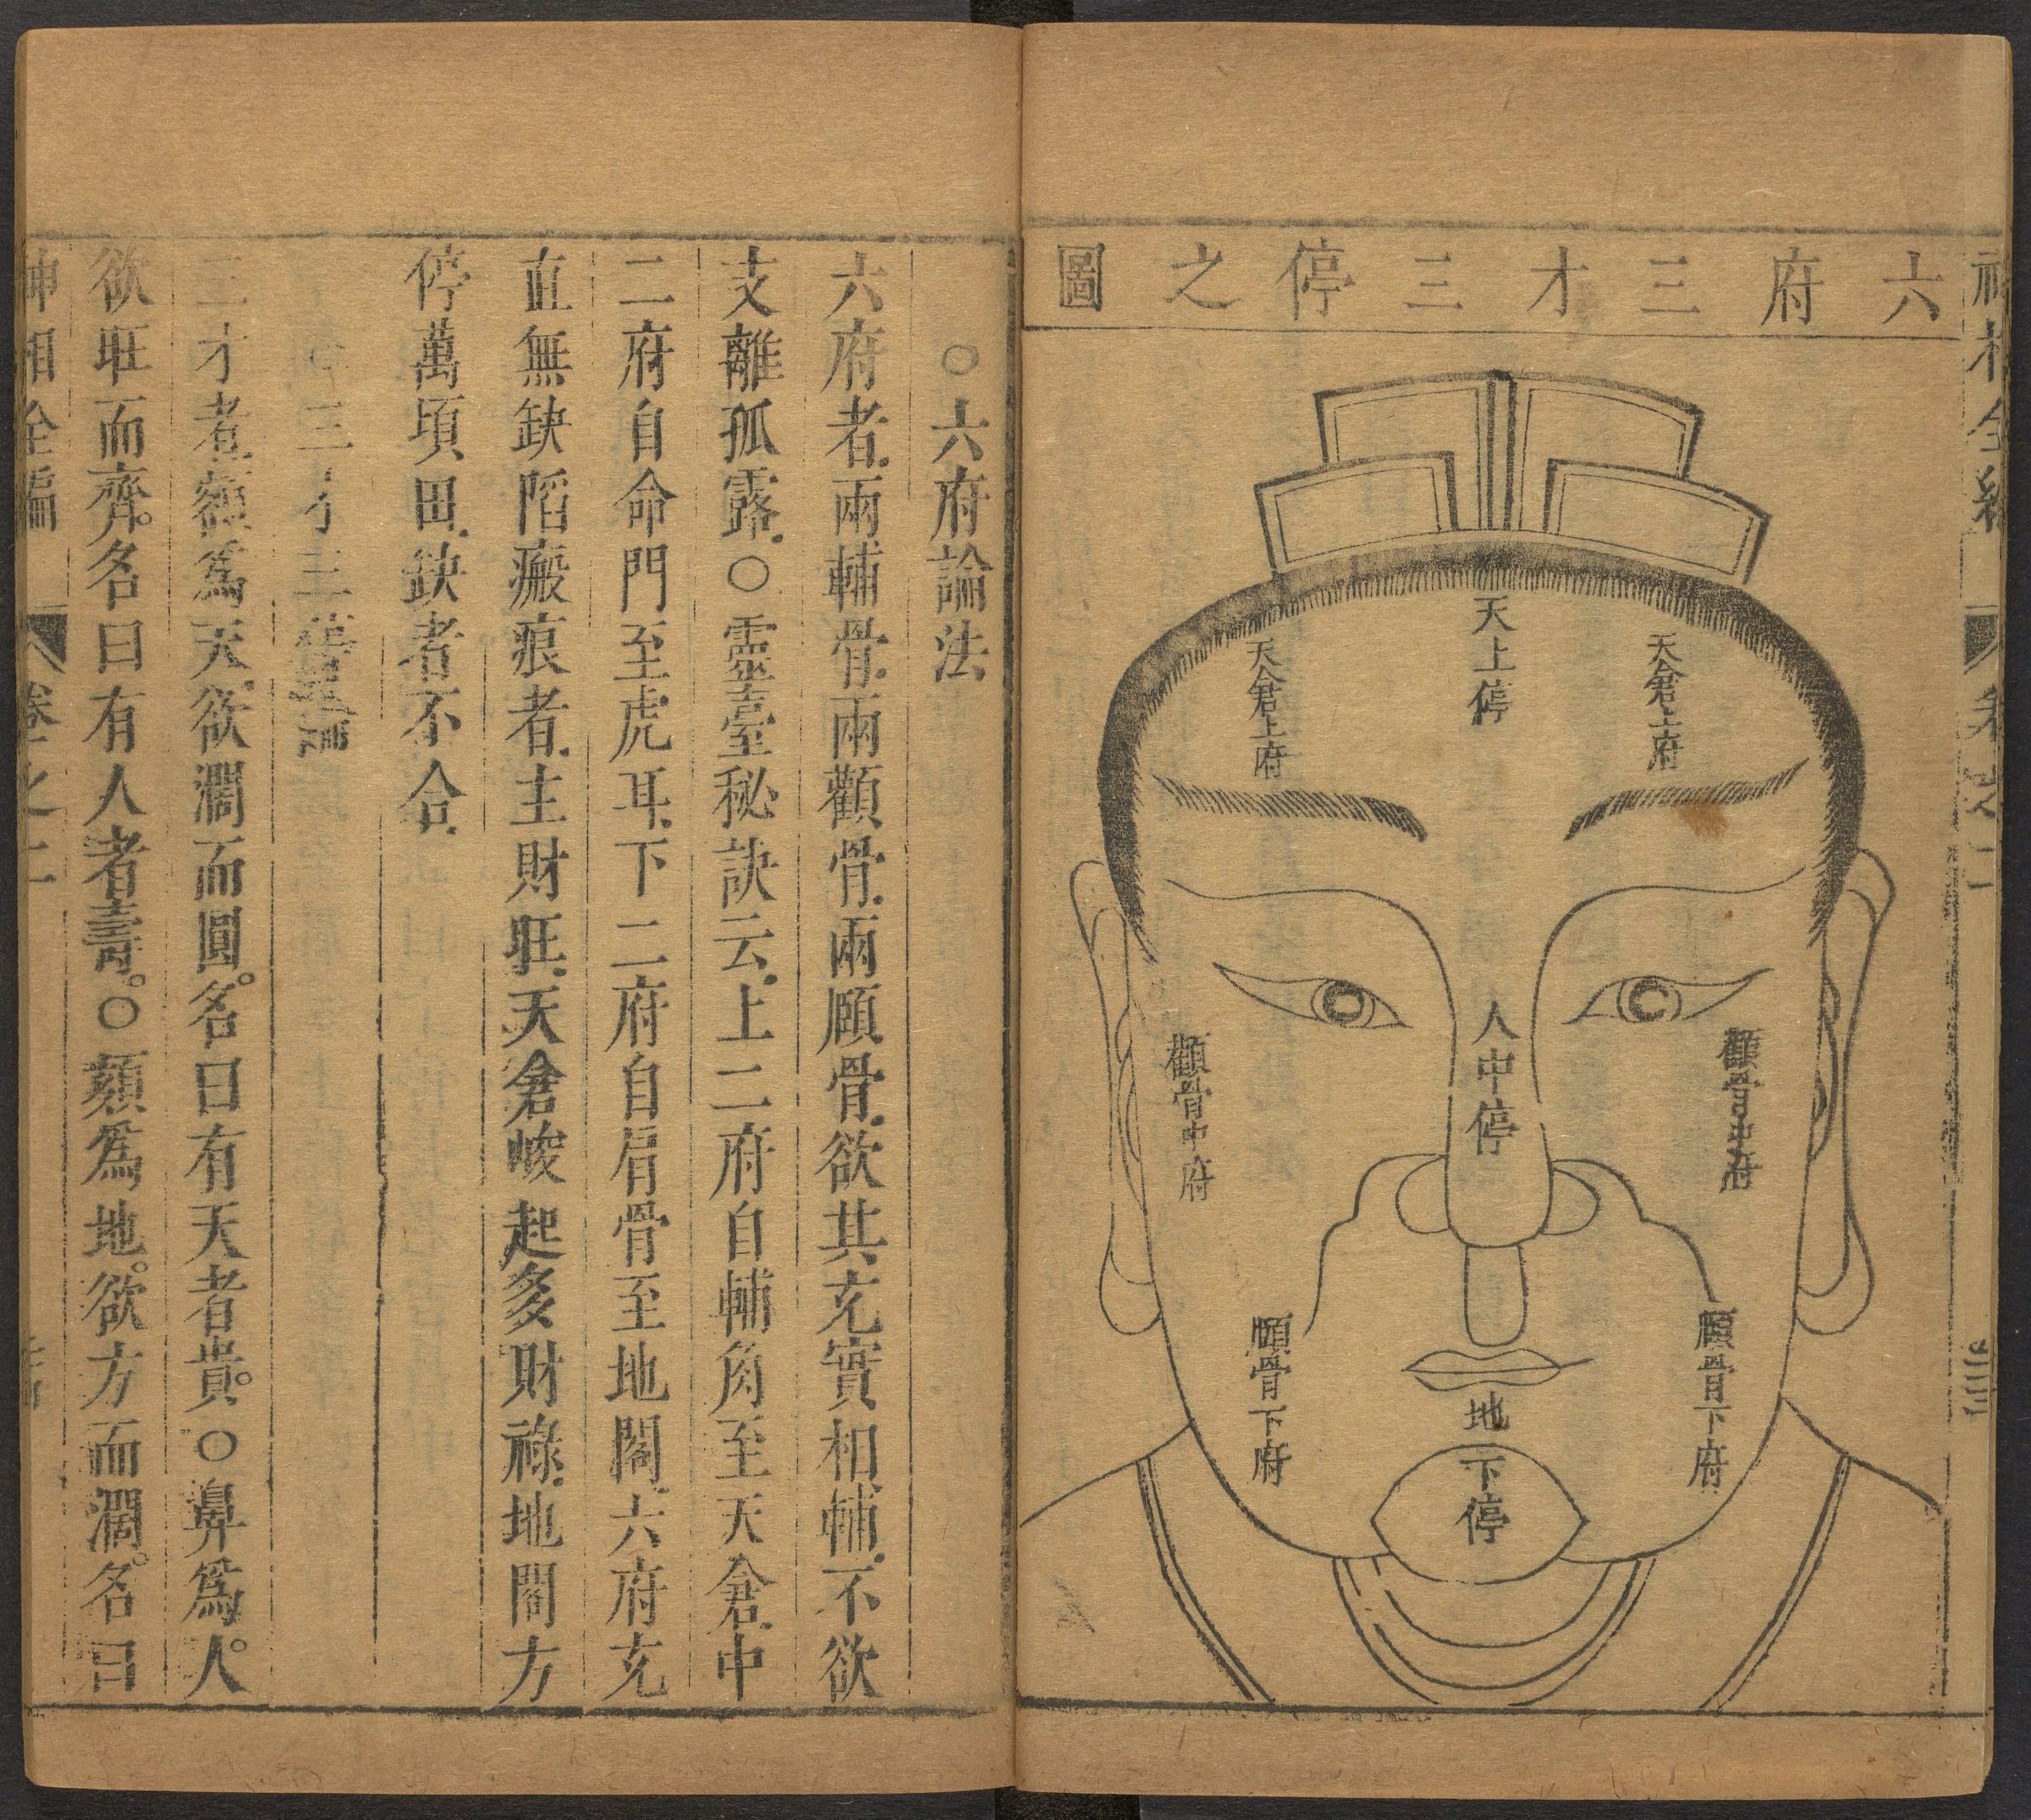 神相全編
卷之二
六府三才三停之圖
天上停
天倉上府
天倉上府
人中停
顴骨中府
顴骨中府
頤骨下府
頤骨下府
地
下停
○六府論法
六府者.兩輔骨.兩顴骨.兩頤骨.欲其充實相輔.不欲
支離孤露.○靈臺秘訣云.上二府自輔角至天倉.中
二府自命門至虎耳.下二府自肩骨至地閣.六府充
直無缺陷瘢痕者.主財旺.天倉峻起多財祿.地閣方
停萬頃田.缺者不合.
○三才三停論
三才者.額爲天.欲濶而圓。名曰有天者貴。○鼻爲人。
欲旺而齊。名曰有人者壽。○頦爲地。欲方而濶。名曰
神相全編
卷之二